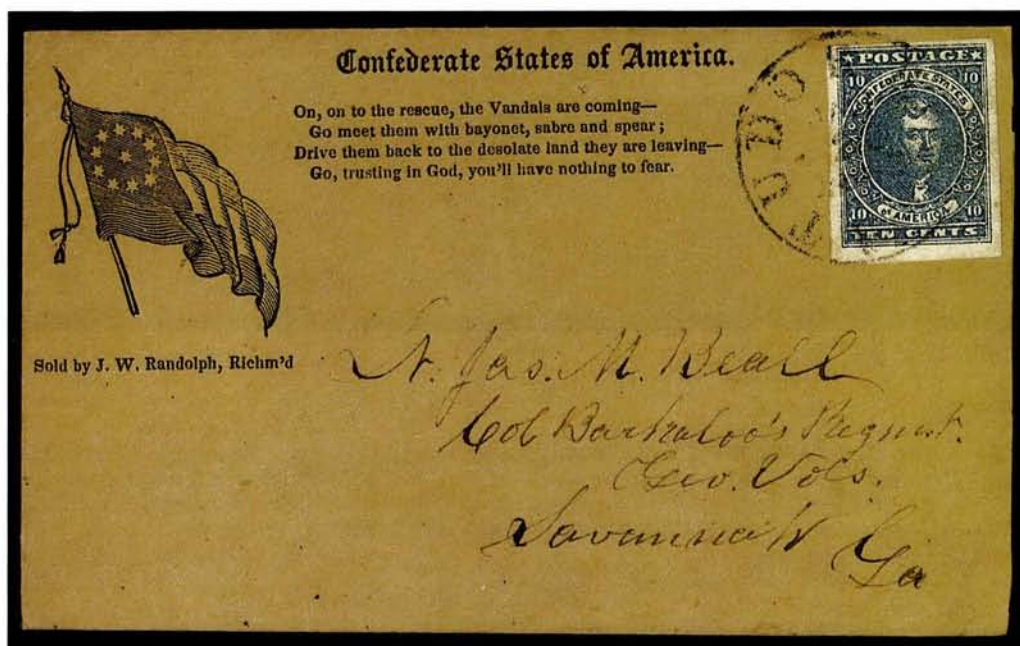 Confederate States of America.
On, on to the rescue, the Vandals are coming—
Go meet them with bayonet, sabre and spear;
Drive them back to the desolate land they are leaving—
Go, trusting in God, you'll have nothing to fear.
★POSTAGE★
10 10
CONFEDERATE STATES
10 10
OF AMERICA
TEN CENTS
TUD
Sold by J. W. Randolph, Richm'd
Jas. M. Beall
Col Barkaloo's Regmt.
Geo. Vols.
Savannah
Ga